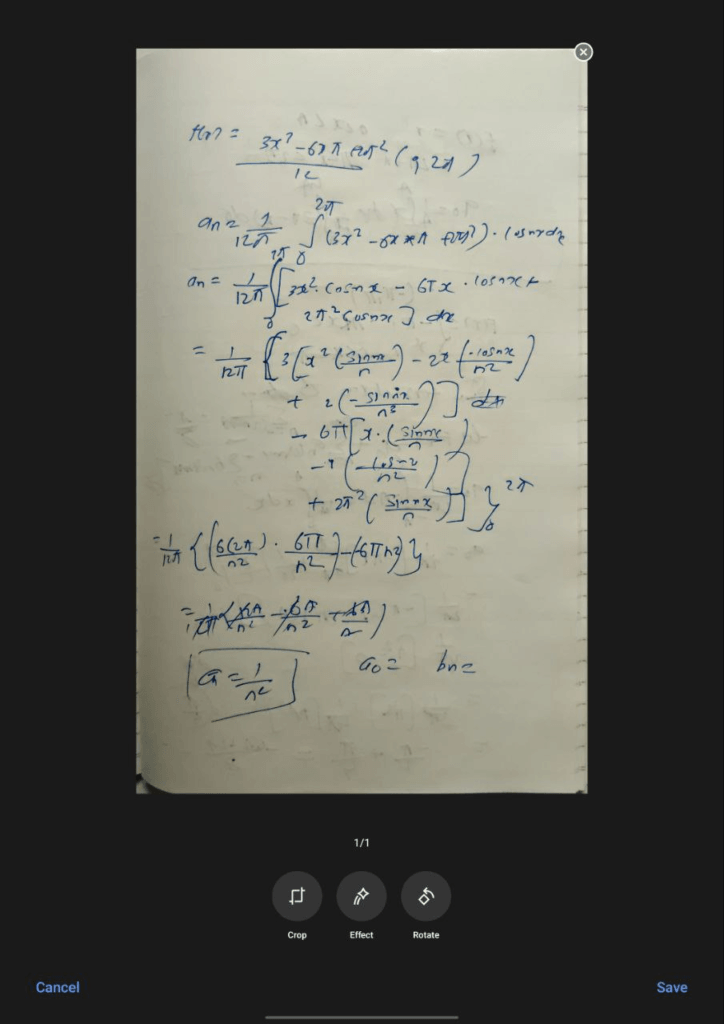 f(x) = 3x² - 6xπ + 2π² / 12 (0, 2π)
an = 1/12π ∫₀^2π (3x² - 6xπ + 2π²) · cosnx dx
an = 1/12π ∫₀^2π [3x² · cosnx - 6πx · cosnx +
2π² cosnx] · dx
= 1/12π { 3[x² (sinnx/n) - 2x (-cosnx/n²)
+ 2 (-sinnx/n³)]
- 6π [x · (sinnx/n)
- 1 (-cosnx/n²)]
+ 2π² (sinnx/n)] }₀^2π
= 1/12π { (6(2π)/n² · 6π/n²) - (-6πn²) }
an = 1/n² a₀ = bn =
1/1
Crop Effect Rotate
Cancel Save